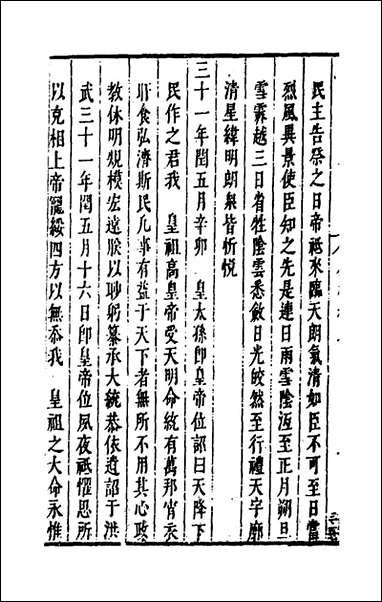 民主告祭之日帝祗來臨天朗氣清如臣不可至日當
烈風異景使臣知之先是連日雨雪陰沍至正月朔旦
雪霽越三日省牲陰雲悉斂日光皎然至行禮天宇廓
清星緯明朗衆皆忻悅
三十一年閏五月辛卯 皇太孫卽皇帝位詔曰天降下
民作之君我 皇祖高皇帝受天明命統有萬邦宵衣
旰食弘濟斯民凡事有益于天下者無所不用其心政
教休明規模宏遠朕以眇躬纂承大統恭依遺詔于洪
武三十一年閏五月十六日卽皇帝位夙夜祗懼思所
以克相上帝寵綏四方以無忝我 皇祖之大命永惟